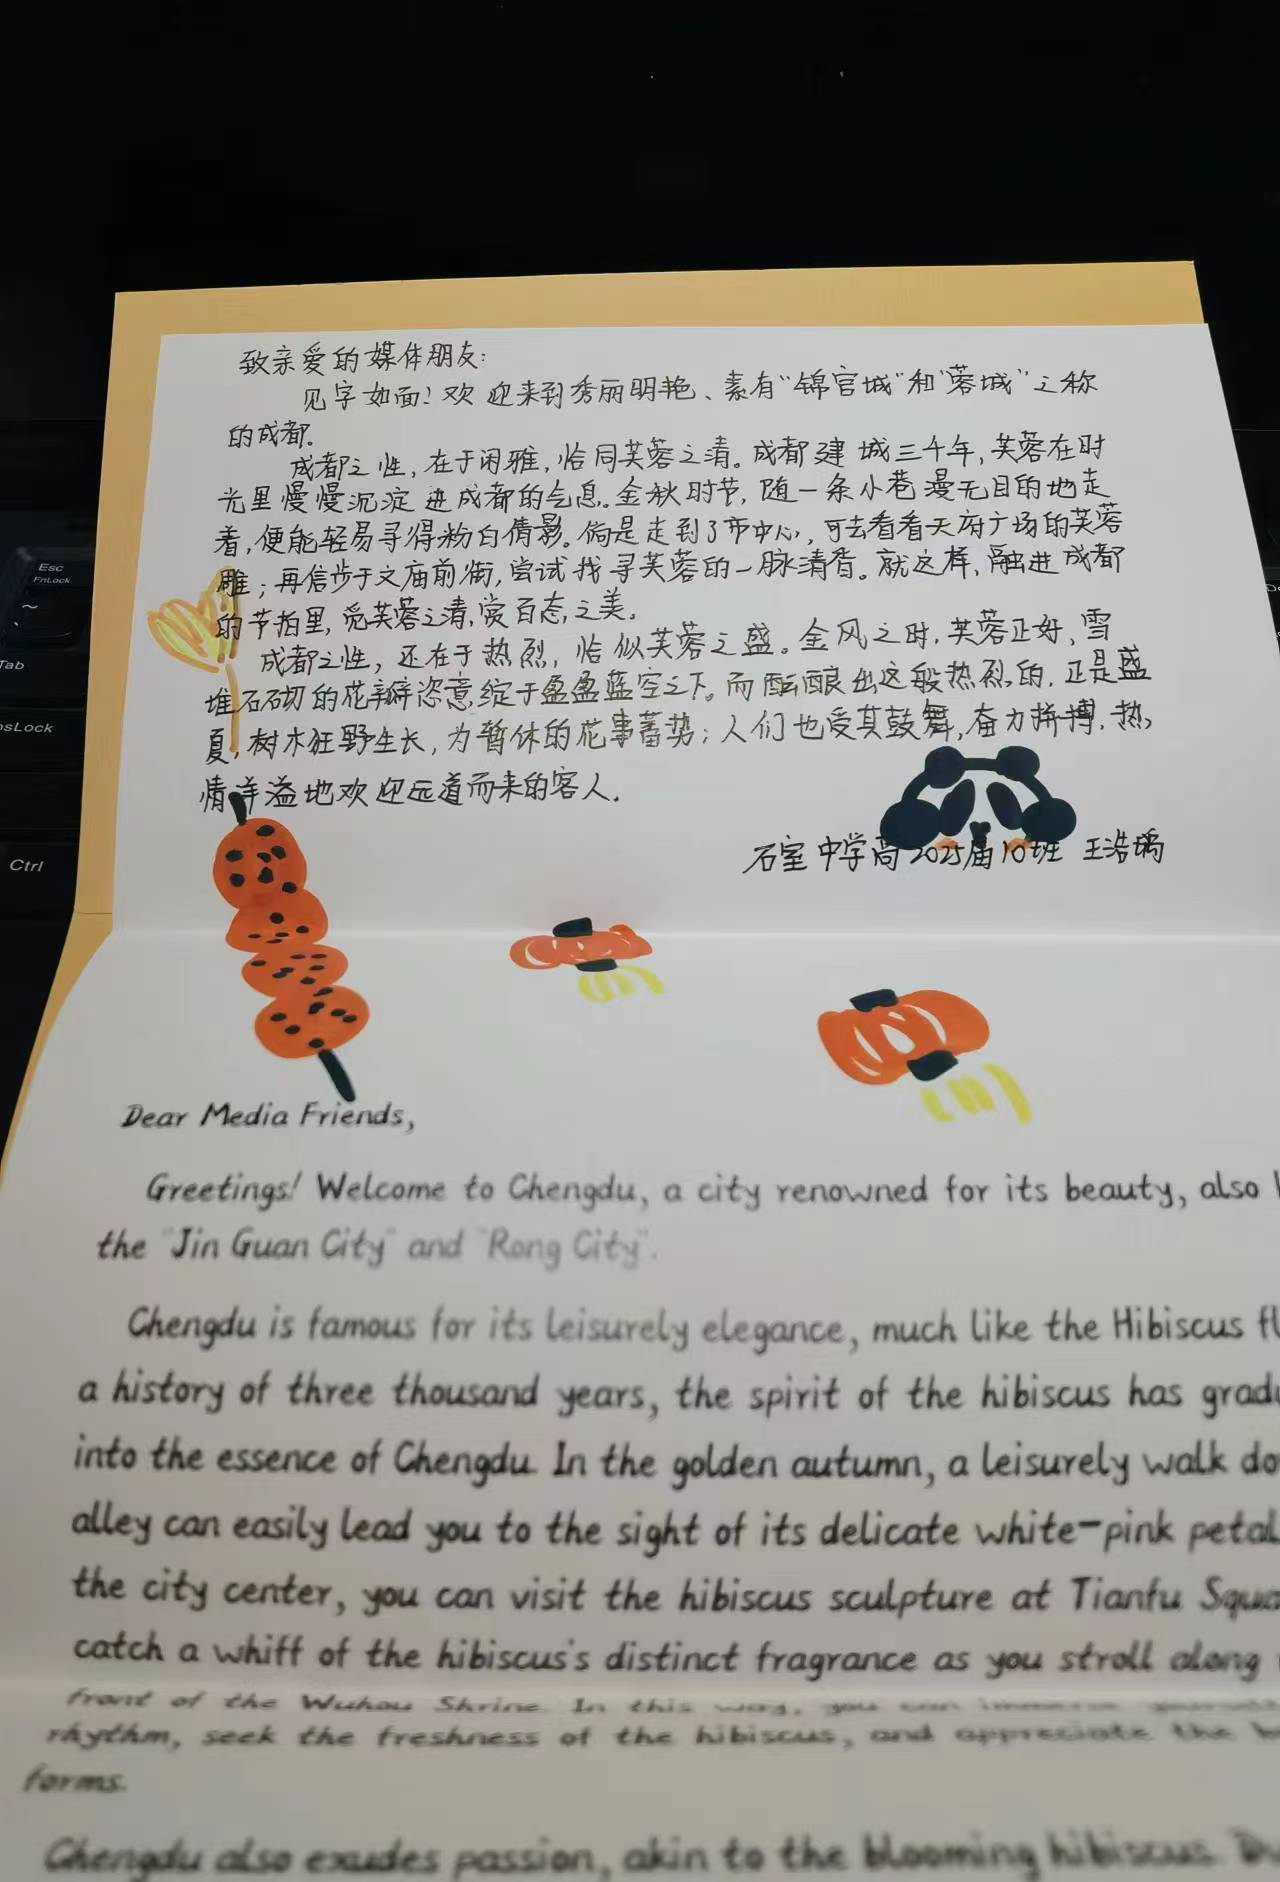 Esc
FnLock
~
Tab
psLock
Ctrl
致亲爱的媒体朋友:
见字如面!欢迎来到秀丽明艳、素有“锦官城”和“蓉城”之称
的成都.
成都之性,在于闲雅,恰同芙蓉之清。成都建城三千年,芙蓉在时
光里慢慢沉淀进成都的气息。金秋时节,随一条小巷漫无目的地走
着,便能轻易寻得粉白倩影。倘是走到了市中心,可去看看天府广场的芙蓉
雕;再信步于文庙前街,尝试找寻芙蓉的一脉清香。就这样,融进成都
的节拍里,觅芙蓉之清,赏百态之美。
成都之性,还在于热烈,恰似芙蓉之盛。金风之时,芙蓉正好,雪
堆石砌的花瓣恣意绽于盈盈蓝空之下。而酝酿出这般热烈的,正是盛
夏,树木狂野生长,为暂休的花事蓄势;人们也受其鼓舞,奋力拼搏,热
情洋溢地欢迎远道而来的客人.
石室中学高2025届10班 王浩
Dear Media Friends,
Greetings! Welcome to Chengdu, a city renowned for its beauty, also
the "Jin Guan City" and "Rong City".
Chengdu is famous for its leisurely elegance, much like the Hibiscus fl
a history of three thousand years, the spirit of the hibiscus has gradu
into the essence of Chengdu. In the golden autumn, a leisurely walk do
alley can easily lead you to the sight of its delicate white-pink petal
the city center, you can visit the hibiscus sculpture at Tianfu Squa
catch a whiff of the hibiscus's distinct fragrance as you stroll along
front of the Wuhou Shrine. In this way, you can immerse yourself
rhythm, seek the freshness of the hibiscus, and appreciate the b
forms.
Chengdu also exudes passion, akin to the blooming hibiscus. Du